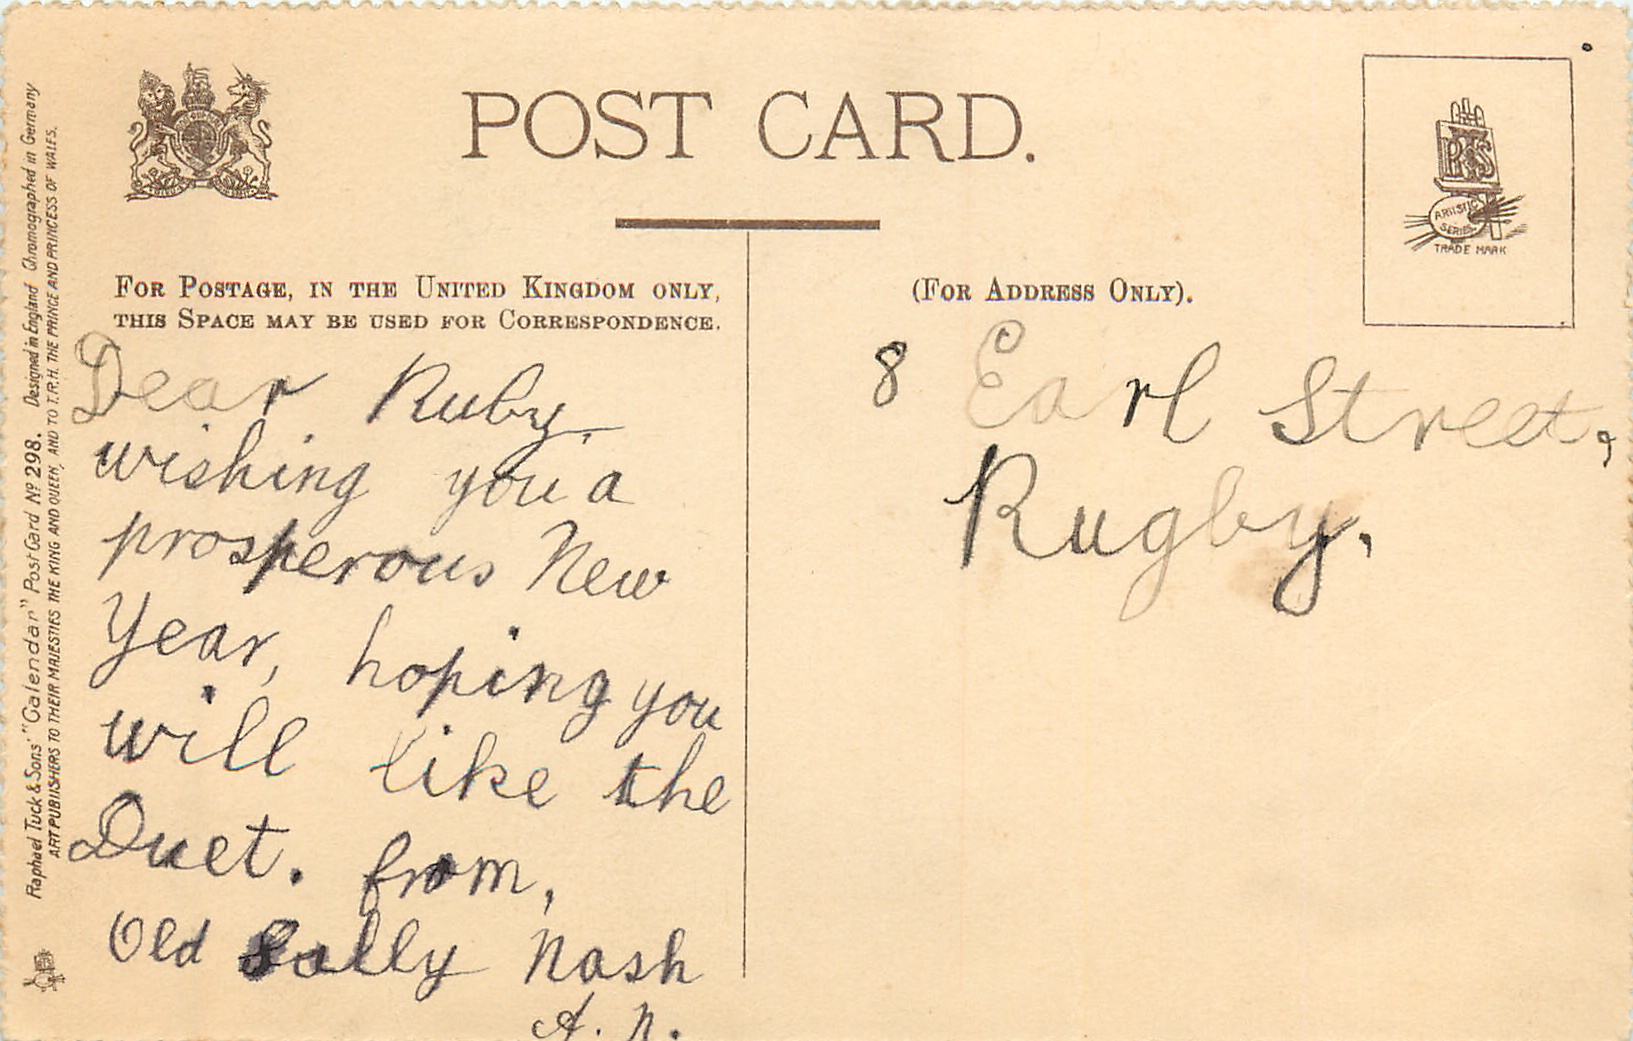 POST CARD.
FOR POSTAGE, IN THE UNITED KINGDOM ONLY,
THIS SPACE MAY BE USED FOR CORRESPONDENCE.
(FOR ADDRESS ONLY).
RTS
ARTISTIC
SERIES
TRADE MARK
Raphael Tuck & Sons' "Calendar" Post Card Nº 298. Designed in England Chromographed in Germany
ART PUBLISHERS TO THEIR MAJESTIES THE KING AND QUEEN, AND TO T.R.H. THE PRINCE AND PRINCESS OF WALES.
Dear Ruby,
wishing you a
prosperous New
Year, hoping you
will like the
Duet. from,
Old Sally Nash
A. N.
8 Earl Street,
Rugby.